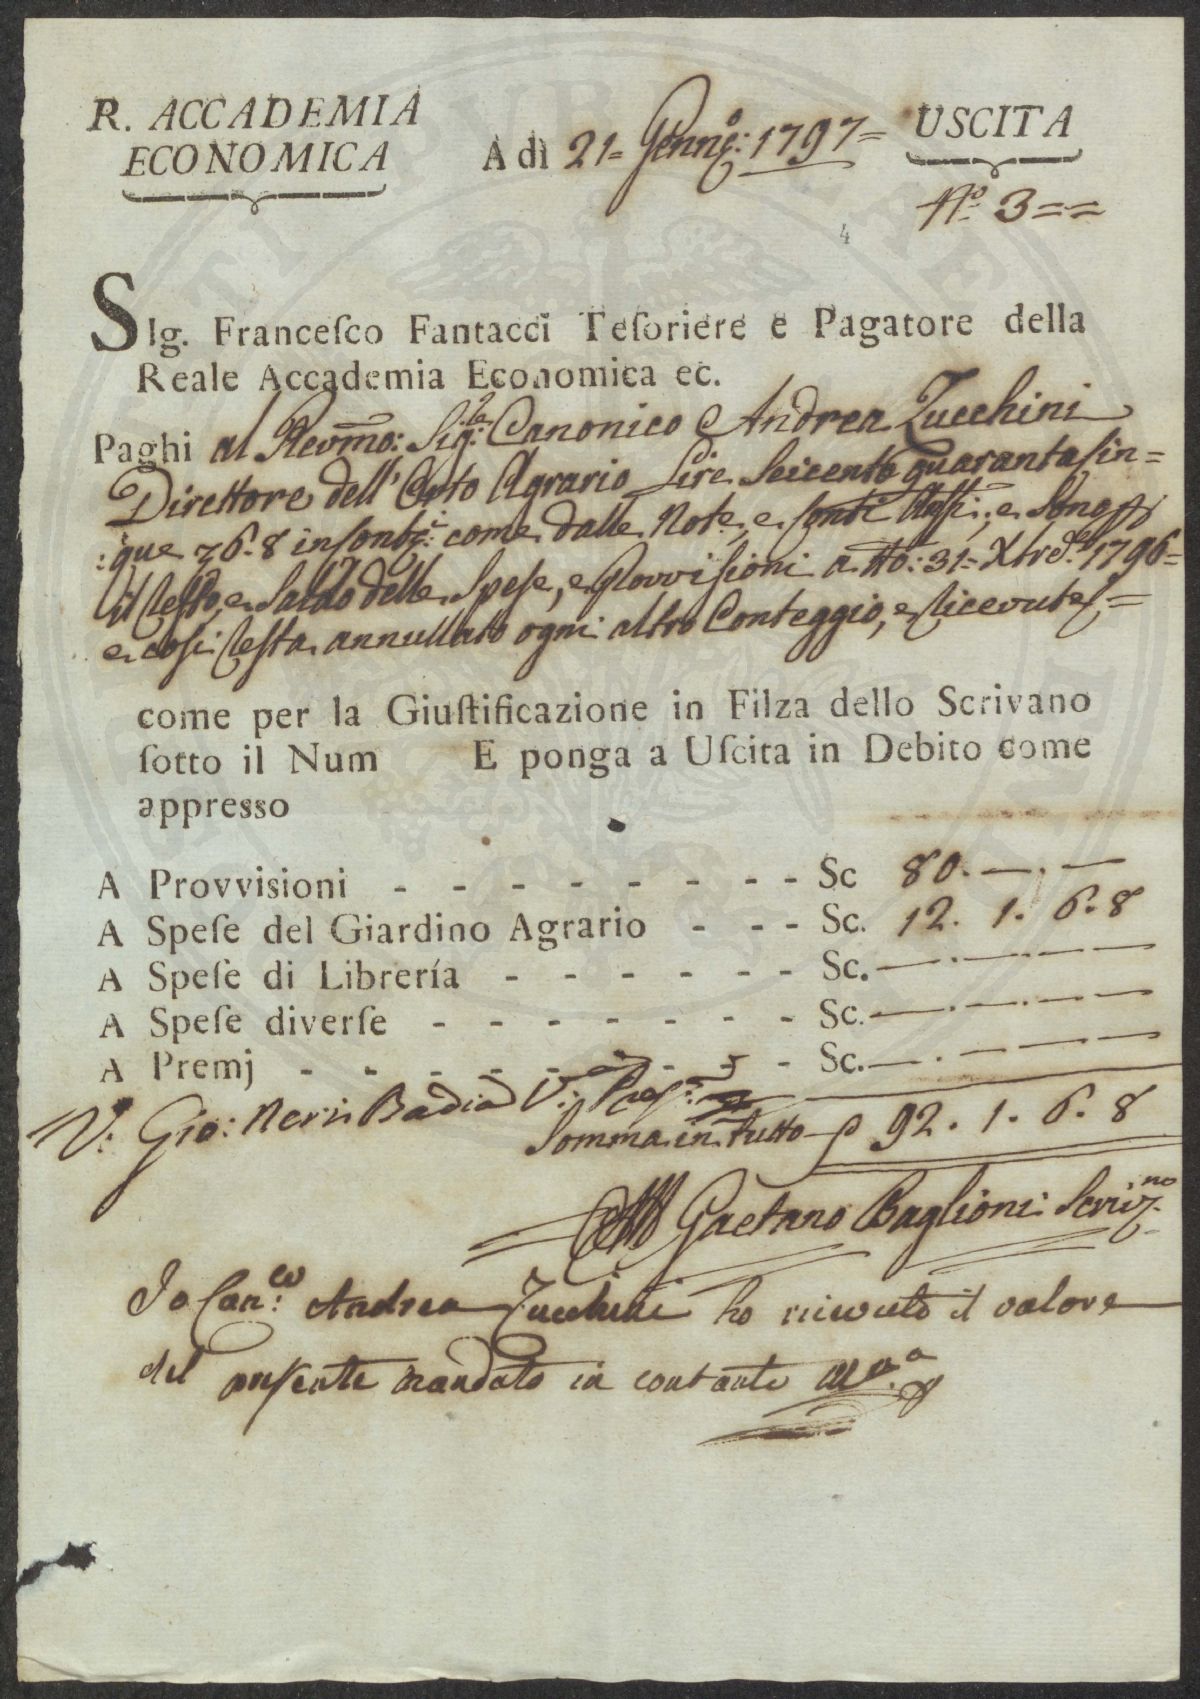 R. ACCADEMIA
ECONOMICA
A dì 21= Gennº: 1797=
USCITA
Nº. 3==
4
SIg. Franceſco Fantacci Teſoriere e Pagatore della
Reale Accademia Economica ec.
Paghi al Revmo: Sigr: Canonico Andrea Zucchini
Direttore dell' Orto Agrario Lire Seicento quarantasin=
:que 6.8 in come dalle Note, e sono
il Resto, e Saldo delle Spese, e Provvisioni a tto: 31= Xbre 1796=
e così resta annullato ogni altro Conteggio, e ricevute,=
come per la Giuſtificazione in Filza dello Scrivano
ſotto il Num E ponga a Uſcita in Debito come
appresso
A Provvisioni - - - - - - - - - Sc 80. —.—
A Speſe del Giardino Agrario - - - Sc. 12. 1. 6. 8
A Speſe di Librería - - - - - - Sc.—.—.—.—
A Speſe diverſe - - - - - - - Sc.—.—.—.—
A Premj - - - - - - - - - Sc.—.—.—.—
V: Gio: Neri Badia V: Pres:
Somma in tutto 92. 1. 6. 8
Gaetano Baglioni Scrivno
Io Canco: Andrea Zucchini ho ricevuto il valore
del presente mandato in contante